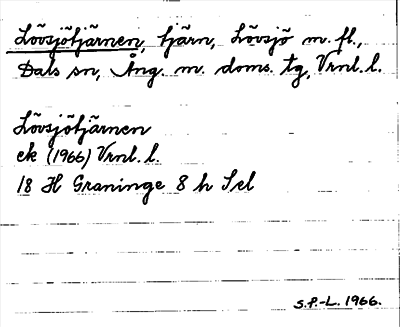 Lövsjötjärnen, tjärn, Lövsjö m. fl.,
Dals sn, Ång. m. doms. tg, Vrnl. l.
Lövsjötjärnen
ek (1966) Vrnl. l.
18 H Graninge 8 h Sel
S.P.-L. 1966.